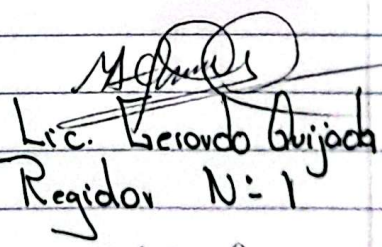 Lic. Gerardo Quijada
Regidor N° 1